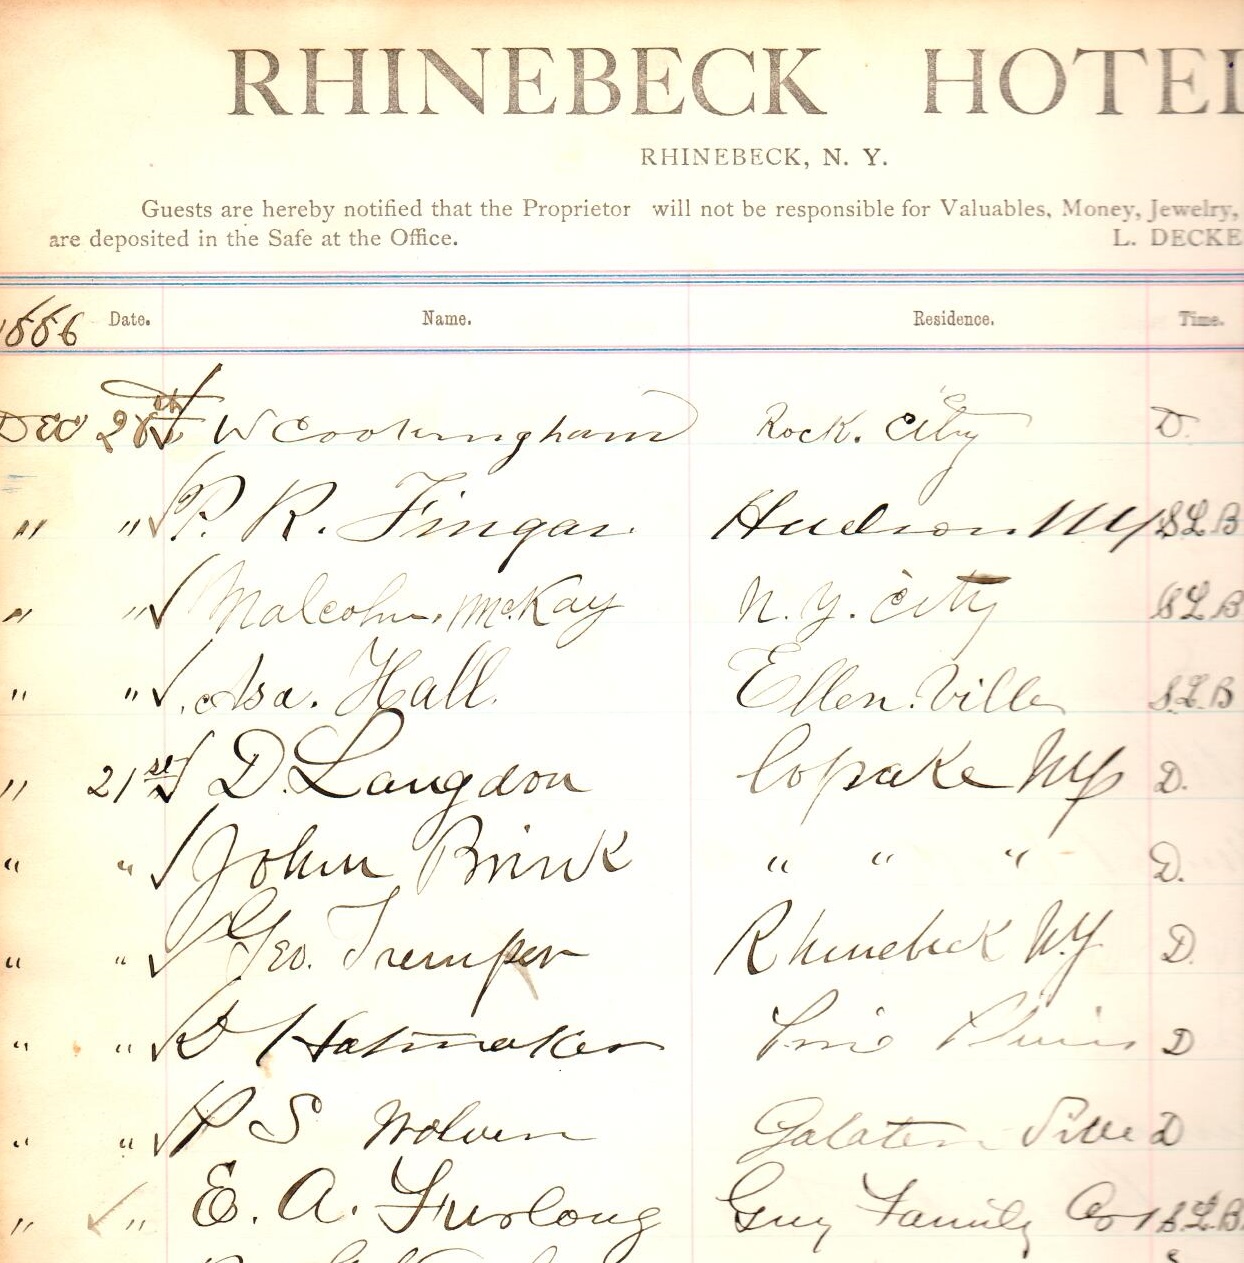 RHINEBECK HOTEL
RHINEBECK, N. Y.
Guests are hereby notified that the Proprietor will not be responsible for Valuables, Money, Jewelry,
are deposited in the Safe at the Office. L. DECKE
1886 Date. Name. Residence. Time.
Dec 20th W Cookingham Rock. City D.
" " P. R. Fingar. Hudson NY S L B
" " Malcolm McKay N. Y. City S L B
" " Asa. Hall. Ellen.ville S.L.B
" 21st D. Langdon Copake NY D.
" " John Brink " " " D.
" " Geo. Tremper Rhinebeck N.Y D.
" " D Hatmaker Pine Plains D
" " P S Wolven D
" " E. A. Furlong Guy Family Co S.L.B.